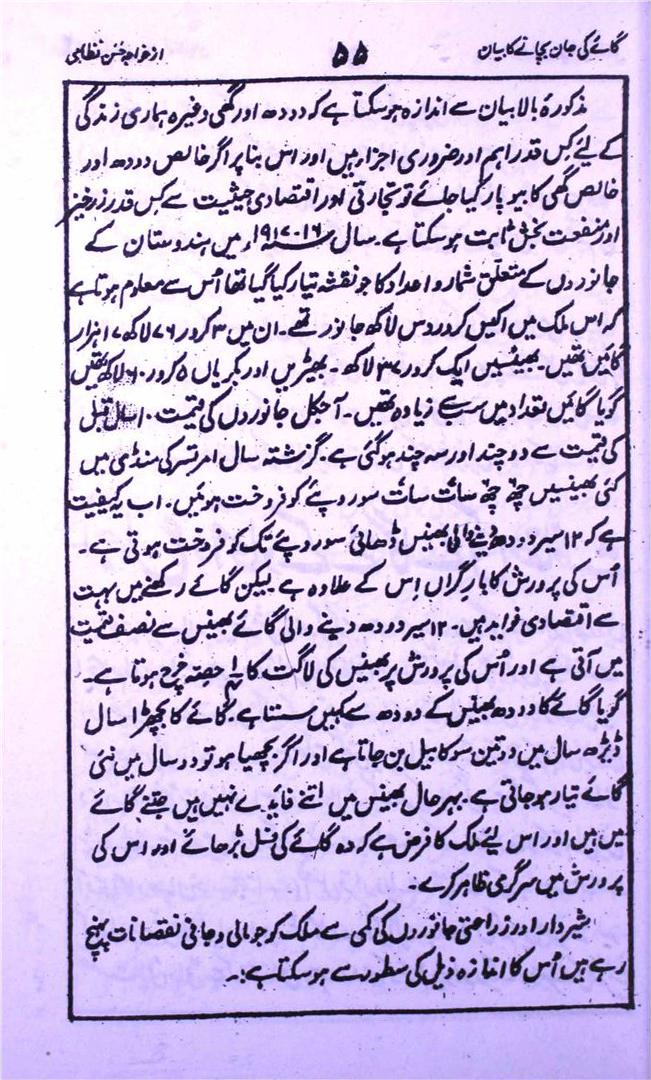 گائے کی جان بچانے کا بیان
۵۵
از خواجہ حسن نظامی
مذکورۂ بالا بیان سے اندازہ ہو سکتا ہے کہ دودھ اور گھی وغیرہ ہماری زندگی
کے لئے کس قدر اہم اور ضروری اجزاء ہیں اور اس بنا پر اگر خالص دودھ اور
خالص گھی کا بیوپار کیا جائے تو تجارتی اور اقتصادی حیثیت سے کس قدر زرخیز
اور منفعت بخش ثابت ہو سکتا ہے۔ سال ۱۶۔۱۹۱۷ء میں ہندوستان کے
جانوروں کے متعلق شمار و اعداد کا جو نقشہ تیار کیا گیا تھا اُس سے معلوم ہوتا ہے
کہ اس ملک میں اکیس کروڑ دس لاکھ جانور تھے۔ ان میں ۳ کرور ۷۶ لاکھ ۷ ہزار
گائیں تھیں۔ بھینسیں ایک کرور ۳۷ لاکھ۔ بھیڑیں اور بکریاں ۵ کرور ۶۰ لاکھ تھیں
گویا گائیں تعداد میں سب سے زیادہ تھیں۔ آجکل جانوروں کی قیمت ۱۰ سال قبل
کی قیمت سے دو چند اور سہ چند ہو گئی ہے۔ گزشتہ سال امرتسر کی منڈی میں
کئی بھینسیں چھ چھ سات سات سو روپئے کو فروخت ہوئیں۔ اب یہ کیفیت
ہے کہ ۱۲ سیر دودھ دینے والی بھینس ڈھائی سو روپئے تک کو فروخت ہوتی ہے۔
اُس کی پرورش کا بارِ گراں اِس کے علاوہ ہے لیکن گائے رکھنے میں بہت
سے اقتصادی فواید ہیں۔ ۱۲ سیر دودھ دینے والی گائے بھینس سے نصف قیمت
میں آتی ہے اور اُس کی پرورش پر بھینس کی لاگت کا حصہ خرچ ہوتا ہے۔
گویا گائے کا دودھ بھینس کے دودھ سے کہیں سستا ہے۔ گائے کا بچھڑا سال
ڈیڑھ سال میں دو تین سو کا بیل بن جاتا ہے اور اگر بچھیا ہو تو دو سال میں نئی
گائے تیار ہو جاتی ہے۔ بہرحال بھینس میں اتنے فایدے نہیں ہیں جتنے گائے
میں ہیں اور اس لئے ملک کا فرض ہے کہ وہ گائے کی نسل بڑھائے اور اس کی
پرورش میں سرگرمی ظاہر کرے۔
شیردار اور زراعتی جانوروں کی کمی سے ملک کو جو مالی و جانی نقصانات پہنچ
رہے ہیں اُس کا اندازہ ذیل کی سطور سے ہو سکتا ہے:۔